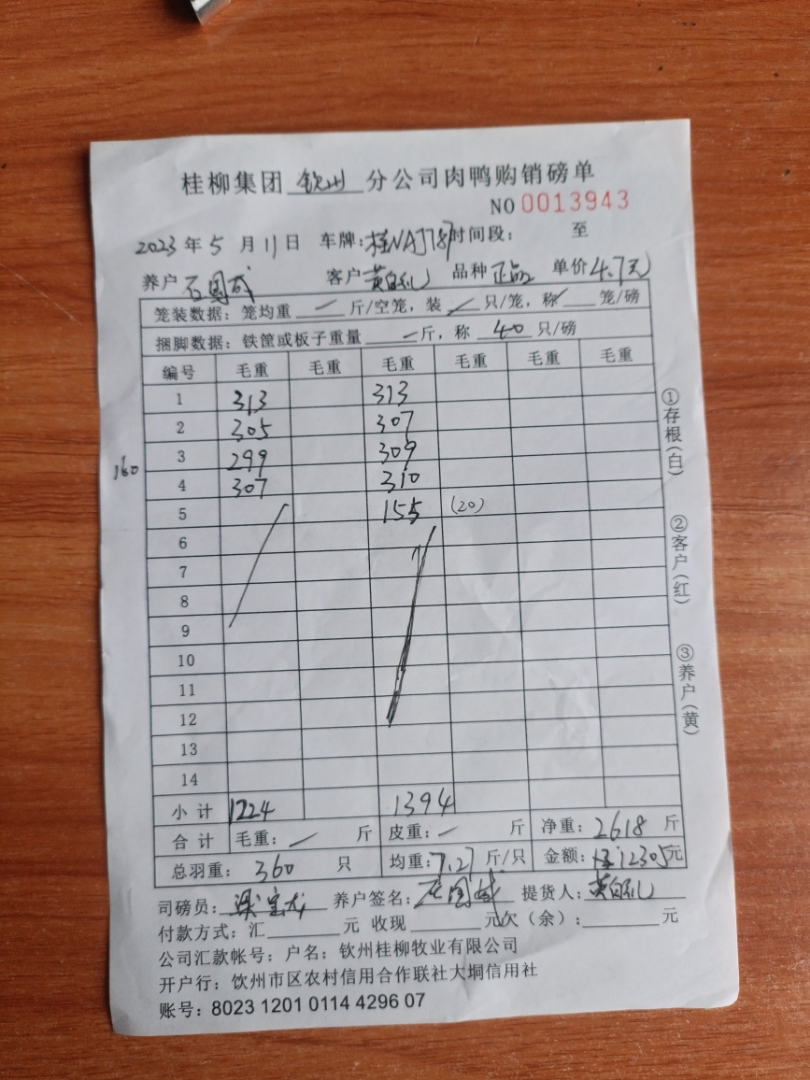 桂柳集团 钦州 分公司肉鸭购销磅单
NO 0013943
2023 年 5 月 11 日 车牌: 时间段: 至
养户 石国成 客户 品种 正品 单价 4.7元
笼装数据: 笼均重 — 斤/空笼, 装 — 只/笼, 称 — 笼/磅
捆脚数据: 铁筐或板子重量 — 斤, 称 40 只/磅
编号 毛重 毛重 毛重 毛重 毛重 毛重
1 313 313
2 305 307
3 299 309
160
4 307 310
5 155 (20)
6
7
8
9
10
11
12
13
14
小计 1224 1394
合计 毛重: — 斤 皮重: — 斤 净重: 2618 斤
总羽重: 360 只 均重: 7.27 斤/只 金额: 12305元
司磅员: 养户签名: 石国成 提货人:
付款方式: 汇 元 收现 元欠(余): 元
公司汇款帐号: 户名: 钦州桂柳牧业有限公司
开户行: 饮州市区农村信用合作联社大垌信用社
账号: 8023 1201 0114 4296 07
①存根(白)
②客户(红)
③养户(黄)